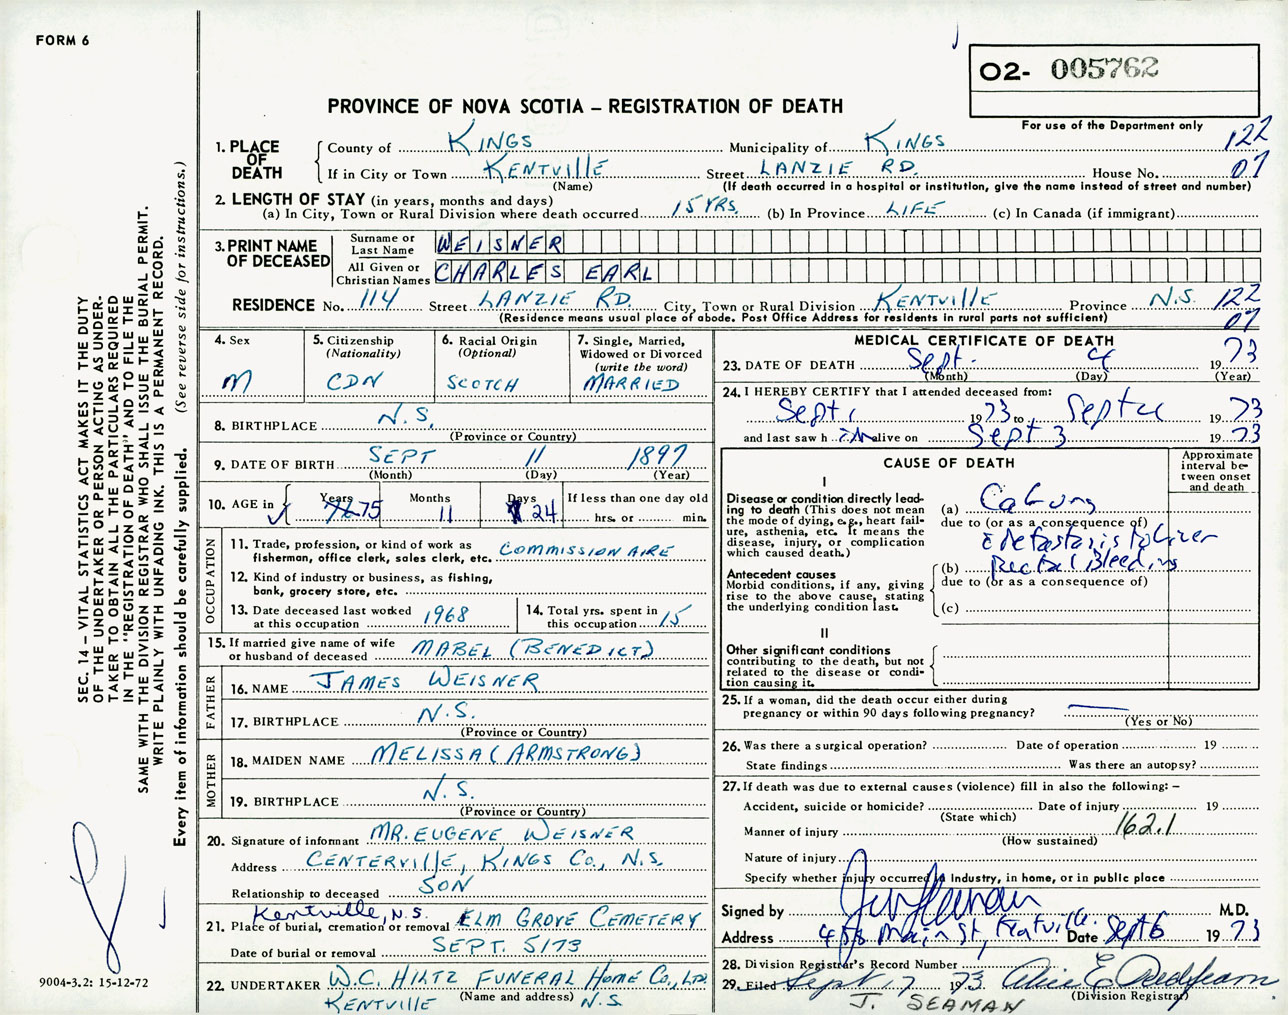 FORM 6
O2- 005762
PROVINCE OF NOVA SCOTIA – REGISTRATION OF DEATH
For use of the Department only
1. PLACE OF DEATH
County of KINGS Municipality of KINGS 122
If in City or Town KENTVILLE Street LANZIE RD. House No. 07
(Name) (If death occurred in a hospital or institution, give the name instead of street and number)
2. LENGTH OF STAY (in years, months and days)
(a) In City, Town or Rural Division where death occurred 15 YRS. (b) In Province LIFE (c) In Canada (if immigrant)
3. PRINT NAME OF DECEASED
Surname or Last Name WEISNER
All Given or Christian Names CHARLES EARL
RESIDENCE No. 114 Street LANZIE RD. City, Town or Rural Division KENTVILLE Province N.S. 122
(Residence means usual place of abode. Post Office Address for residents in rural parts not sufficient) 07
4. Sex
M
5. Citizenship (Nationality)
CDN
6. Racial Origin (Optional)
SCOTCH
7. Single, Married, Widowed or Divorced (write the word)
MARRIED
8. BIRTHPLACE N.S.
(Province or Country)
9. DATE OF BIRTH SEPT 11 1897
(Month) (Day) (Year)
10. AGE in Years Months Days If less than one day old
75 11 24 hrs. or min.
OCCUPATION
11. Trade, profession, or kind of work as fisherman, office clerk, sales clerk, etc. COMMISSIONAIRE
12. Kind of industry or business, as fishing, bank, grocery store, etc.
13. Date deceased last worked at this occupation 1968
14. Total yrs. spent in this occupation 15
15. If married give name of wife or husband of deceased MABEL (BENEDICT)
FATHER
16. NAME JAMES WEISNER
17. BIRTHPLACE N.S.
(Province or Country)
MOTHER
18. MAIDEN NAME MELISSA (ARMSTRONG)
19. BIRTHPLACE N.S.
(Province or Country)
20. Signature of informant MR. EUGENE WEISNER
Address CENTERVILLE, KINGS CO., N.S.
Relationship to deceased SON
21. Place of burial, cremation or removal Kentville, N.S. ELM GROVE CEMETERY
Date of burial or removal SEPT. 5/73
22. UNDERTAKER W.C. HILTZ FUNERAL HOME CO., LTD.
(Name and address)
KENTVILLE N.S
MEDICAL CERTIFICATE OF DEATH
23. DATE OF DEATH Sept. 4 19 73
(Month) (Day) (Year)
24. I HEREBY CERTIFY that I attended deceased from:
Sept 1 19 73 to Sept 4 19 73
and last saw h im alive on Sept 3 19 73
CAUSE OF DEATH
Approximate interval between onset and death
I
Disease or condition directly leading to death (This does not mean the mode of dying, e.g., heart failure, asthenia, etc. It means the disease, injury, or complication which caused death.)
(a) Ca Lung
due to (or as a consequence of)
c Metastasis to Liver
Antecedent causes
Morbid conditions, if any, giving rise to the above cause, stating the underlying condition last.
(b) Rectal Bleeding
due to (or as a consequence of)
(c)
II
Other significant conditions contributing to the death, but not related to the disease or condition causing it.
25. If a woman, did the death occur either during pregnancy or within 90 days following pregnancy?
(Yes or No)
26. Was there a surgical operation? Date of operation 19
State findings Was there an autopsy?
27. If death was due to external causes (violence) fill in also the following: –
Accident, suicide or homicide? Date of injury 19
(State which)
Manner of injury 162.1
(How sustained)
Nature of injury
Specify whether injury occurred in industry, in home, or in public place
Signed by M.D.
Address Main St, Kentville Date Sept 6 19 73
28. Division Registrar's Record Number
29. Filed Sept 7 1973 Alice E.
(Division Registrar)
J. SEAMAN
SEC. 14 – VITAL STATISTICS ACT MAKES IT THE DUTY
OF THE UNDERTAKER OR PERSON ACTING AS UNDER-
TAKER TO OBTAIN ALL THE PARTICULARS REQUIRED
IN THE "REGISTRATION OF DEATH" AND TO FILE THE
SAME WITH THE DIVISION REGISTRAR WHO SHALL ISSUE THE BURIAL PERMIT.
WRITE PLAINLY WITH UNFADING INK. THIS IS A PERMANENT RECORD.
Every item of information should be carefully supplied. (See reverse side for instructions.)
9004-3.2: 15-12-72